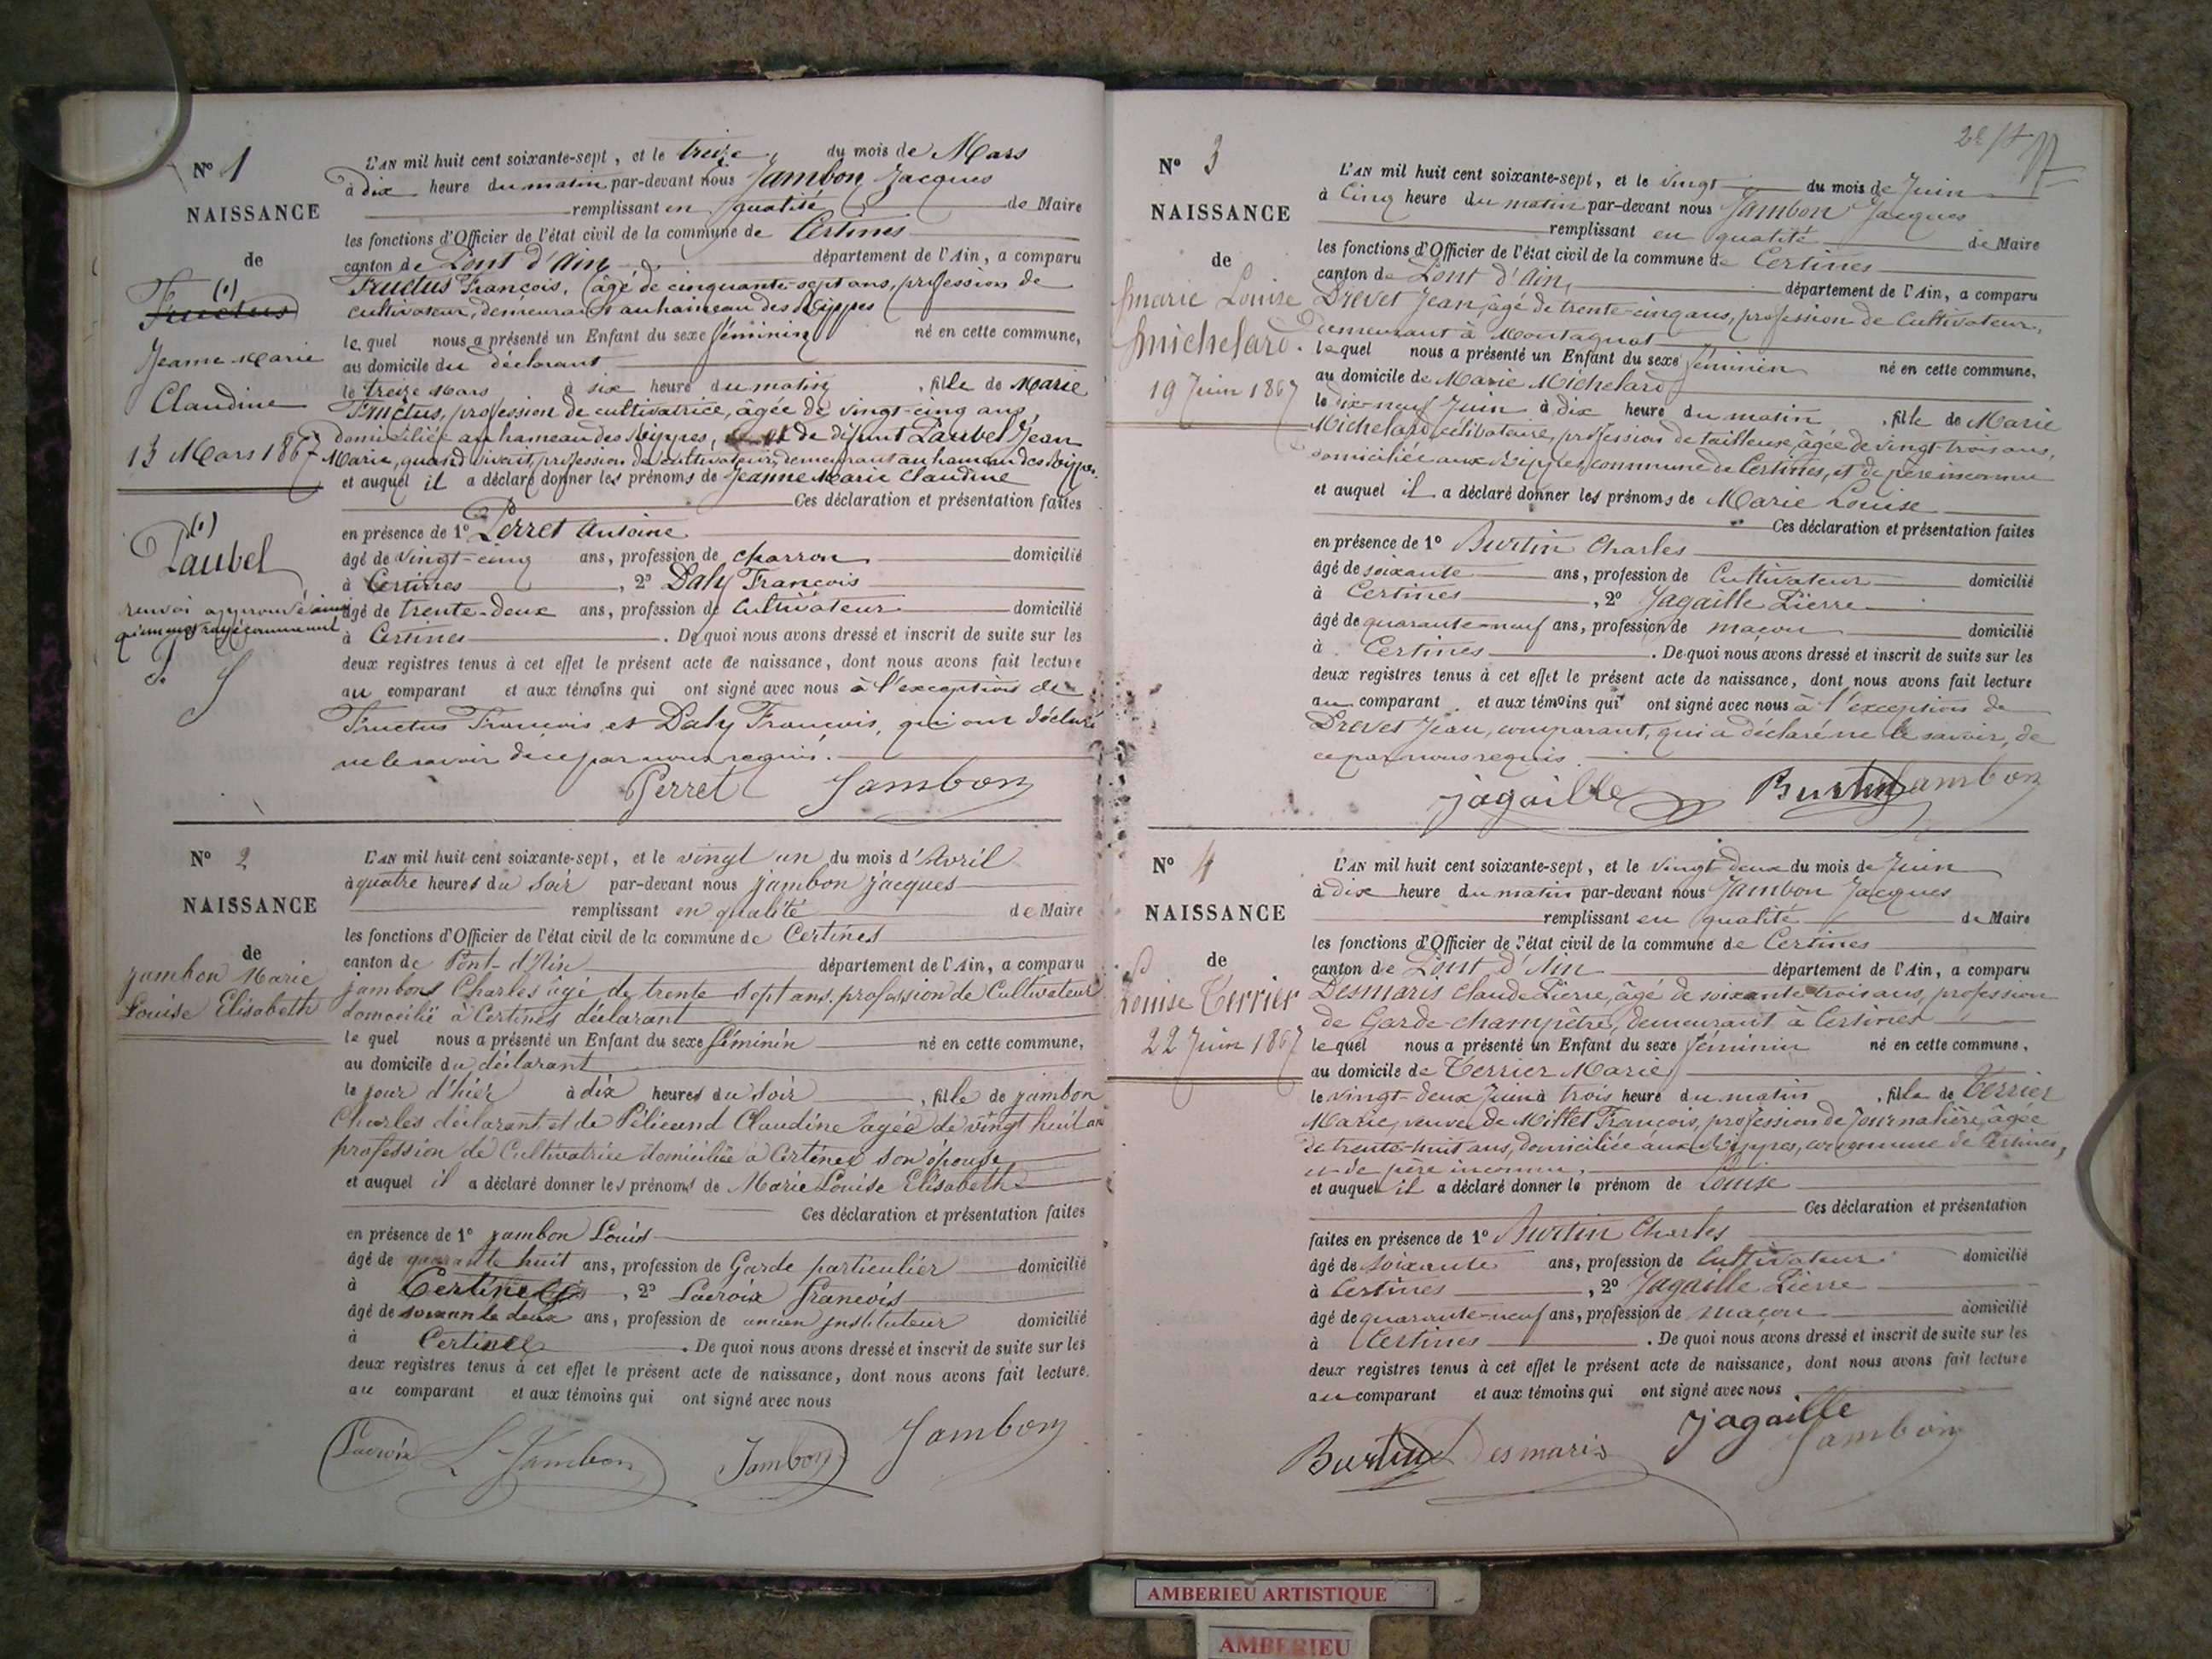 N° 1
NAISSANCE
de
(1)
Fructus
Jeanne Marie
Claudine
13 Mars 1867
(1)
Paubel
L'AN mil huit cent soixante-sept, et le treize du mois de Mars
à dix heure du matin par-devant nous Jambon Jacques
remplissant en qualité de Maire
les fonctions d'Officier de l'état civil de la commune de Certines
canton de Pont d'Ain département de l'Ain, a comparu
Fructus François, âgé de cinquante-sept ans, profession de
cultivateur, demeurant au hameau des
le quel nous a présenté un Enfant du sexe féminin né en cette commune,
au domicile du déclarant
le treize Mars à six heure du matin, fille de Marie
Fructus, profession de cultivatrice, âgée de vingt-cinq ans,
domiciliée au hameau des de défunt Paubel Jean
Marie, quand vivait, profession de cultivateur, demeurant au hameau des
et auquel il a déclaré donner les prénoms de Jeanne Marie Claudine
Ces déclaration et présentation faites
en présence de 1° Perret Antoine
âgé de vingt-cinq ans, profession de charron domicilié
à Certines, 2° Daly François
âgé de trente-deux ans, profession de Cultivateur domicilié
à Certines. De quoi nous avons dressé et inscrit de suite sur les
deux registres tenus à cet effet le présent acte de naissance, dont nous avons fait lecture
au comparant et aux témoins qui ont signé avec nous à l'exception de
Fructus François et Daly François, qui ont déclaré
ne le savoir de ce par nous requis.
Perret Jambon
N° 2
NAISSANCE
de
Jambon Marie
Louise Elisabeth
L'AN mil huit cent soixante-sept, et le vingt un du mois d'Avril
à quatre heures du soir par-devant nous Jambon Jacques
remplissant en qualité de Maire
les fonctions d'Officier de l'état civil de la commune de Certines
canton de Pont-d'Ain département de l'Ain, a comparu
Jambon Charles agé de trente sept ans. profession de Cultivateur
domicilié à Certines déclarant
le quel nous a présenté un Enfant du sexe féminin né en cette commune,
au domicile du déclarant
le jour d'hier à dix heures du soir, fille de Jambon
Charles déclarant et de Claudine agée de vingt huit ans
profession de Cultivatrice domiciliée à Certines son épouse
et auquel il a déclaré donner les prénoms de Marie Louise Elisabeth
Ces déclaration et présentation faites
en présence de 1° Jambon Louis
âgé de quarante huit ans, profession de Garde particulier domicilié
à Certines, 2° Lacroix François
âgé de soixante deux ans, profession de ancien instituteur domicilié
à Certines. De quoi nous avons dressé et inscrit de suite sur les
deux registres tenus à cet effet le présent acte de naissance, dont nous avons fait lecture.
au comparant et aux témoins qui ont signé avec nous
Lacroix L. Jambon Jambon Jambon
N° 3
NAISSANCE
de
Marie Louise
Michelard.
19 Juin 1867
L'AN mil huit cent soixante-sept, et le vingt du mois de Juin
à Cinq heure du matin par-devant nous Jambon Jacques
remplissant en qualité de Maire
les fonctions d'Officier de l'état civil de la commune de Certines
canton de Pont d'Ain, département de l'Ain, a comparu
Drevet Jean, âgé de trente-cinq ans, profession de Cultivateur,
demeurant à Montagnat
le quel nous a présenté un Enfant du sexe féminin né en cette commune,
au domicile de Marie Michelard
le dix-neuf Juin à dix heure du matin, fille de Marie
Michelard, célibataire, profession de tailleuse, âgée de vingt-trois ans,
domiciliée aux commune de Certines, et de père inconnu
et auquel il a déclaré donner les prénoms de Marie Louise
Ces déclaration et présentation faites
en présence de 1° Burtin Charles
âgé de soixante ans, profession de Cultivateur domicilié
à Certines, 2° Jagaille Pierre
âgé de quarante-neuf ans, profession de maçon domicilié
à Certines. De quoi nous avons dressé et inscrit de suite sur les
deux registres tenus à cet effet le présent acte de naissance, dont nous avons fait lecture
au comparant et aux témoins qui ont signé avec nous à l'exception de
Drevet Jean, comparant, qui a déclaré ne le savoir, de
ce par nous requis.
Jagaille Burtin Jambon
N° 4
NAISSANCE
de
Louise Terrier
22 Juin 1867
L'AN mil huit cent soixante-sept, et le vingt-deux du mois de Juin
à dix heure du matin par-devant nous Jambon Jacques
remplissant en qualité de Maire
les fonctions d'Officier de l'état civil de la commune de Certines
canton de Pont d'Ain département de l'Ain, a comparu
Desmaris Claude Pierre, âgé de soixante-trois ans, profession
de Garde-champêtre, demeurant à Certines
le quel nous a présenté un Enfant du sexe féminin né en cette commune,
au domicile de Terrier Marie
le vingt-deux Juin à trois heure du matin, fille de Terrier
Marie, veuve de Millet François, profession de Journalière, âgée
de trente-huit ans, domiciliée aux commune de Certines,
et de père inconnu,
et auquel il a déclaré donner le prénom de Louise
Ces déclaration et présentation
faites en présence de 1° Burtin Charles
âgé de soixante ans, profession de Cultivateur domicilié
à Certines, 2° Jagaille Pierre
âgé de quarante-neuf ans, profession de maçon domicilié
à Certines. De quoi nous avons dressé et inscrit de suite sur les
deux registres tenus à cet effet le présent acte de naissance, dont nous avons fait lecture
au comparant et aux témoins qui ont signé avec nous.
Burtin Desmaris Jagaille Jambon
AMBERIEU ARTISTIQUE
AMBERIEU